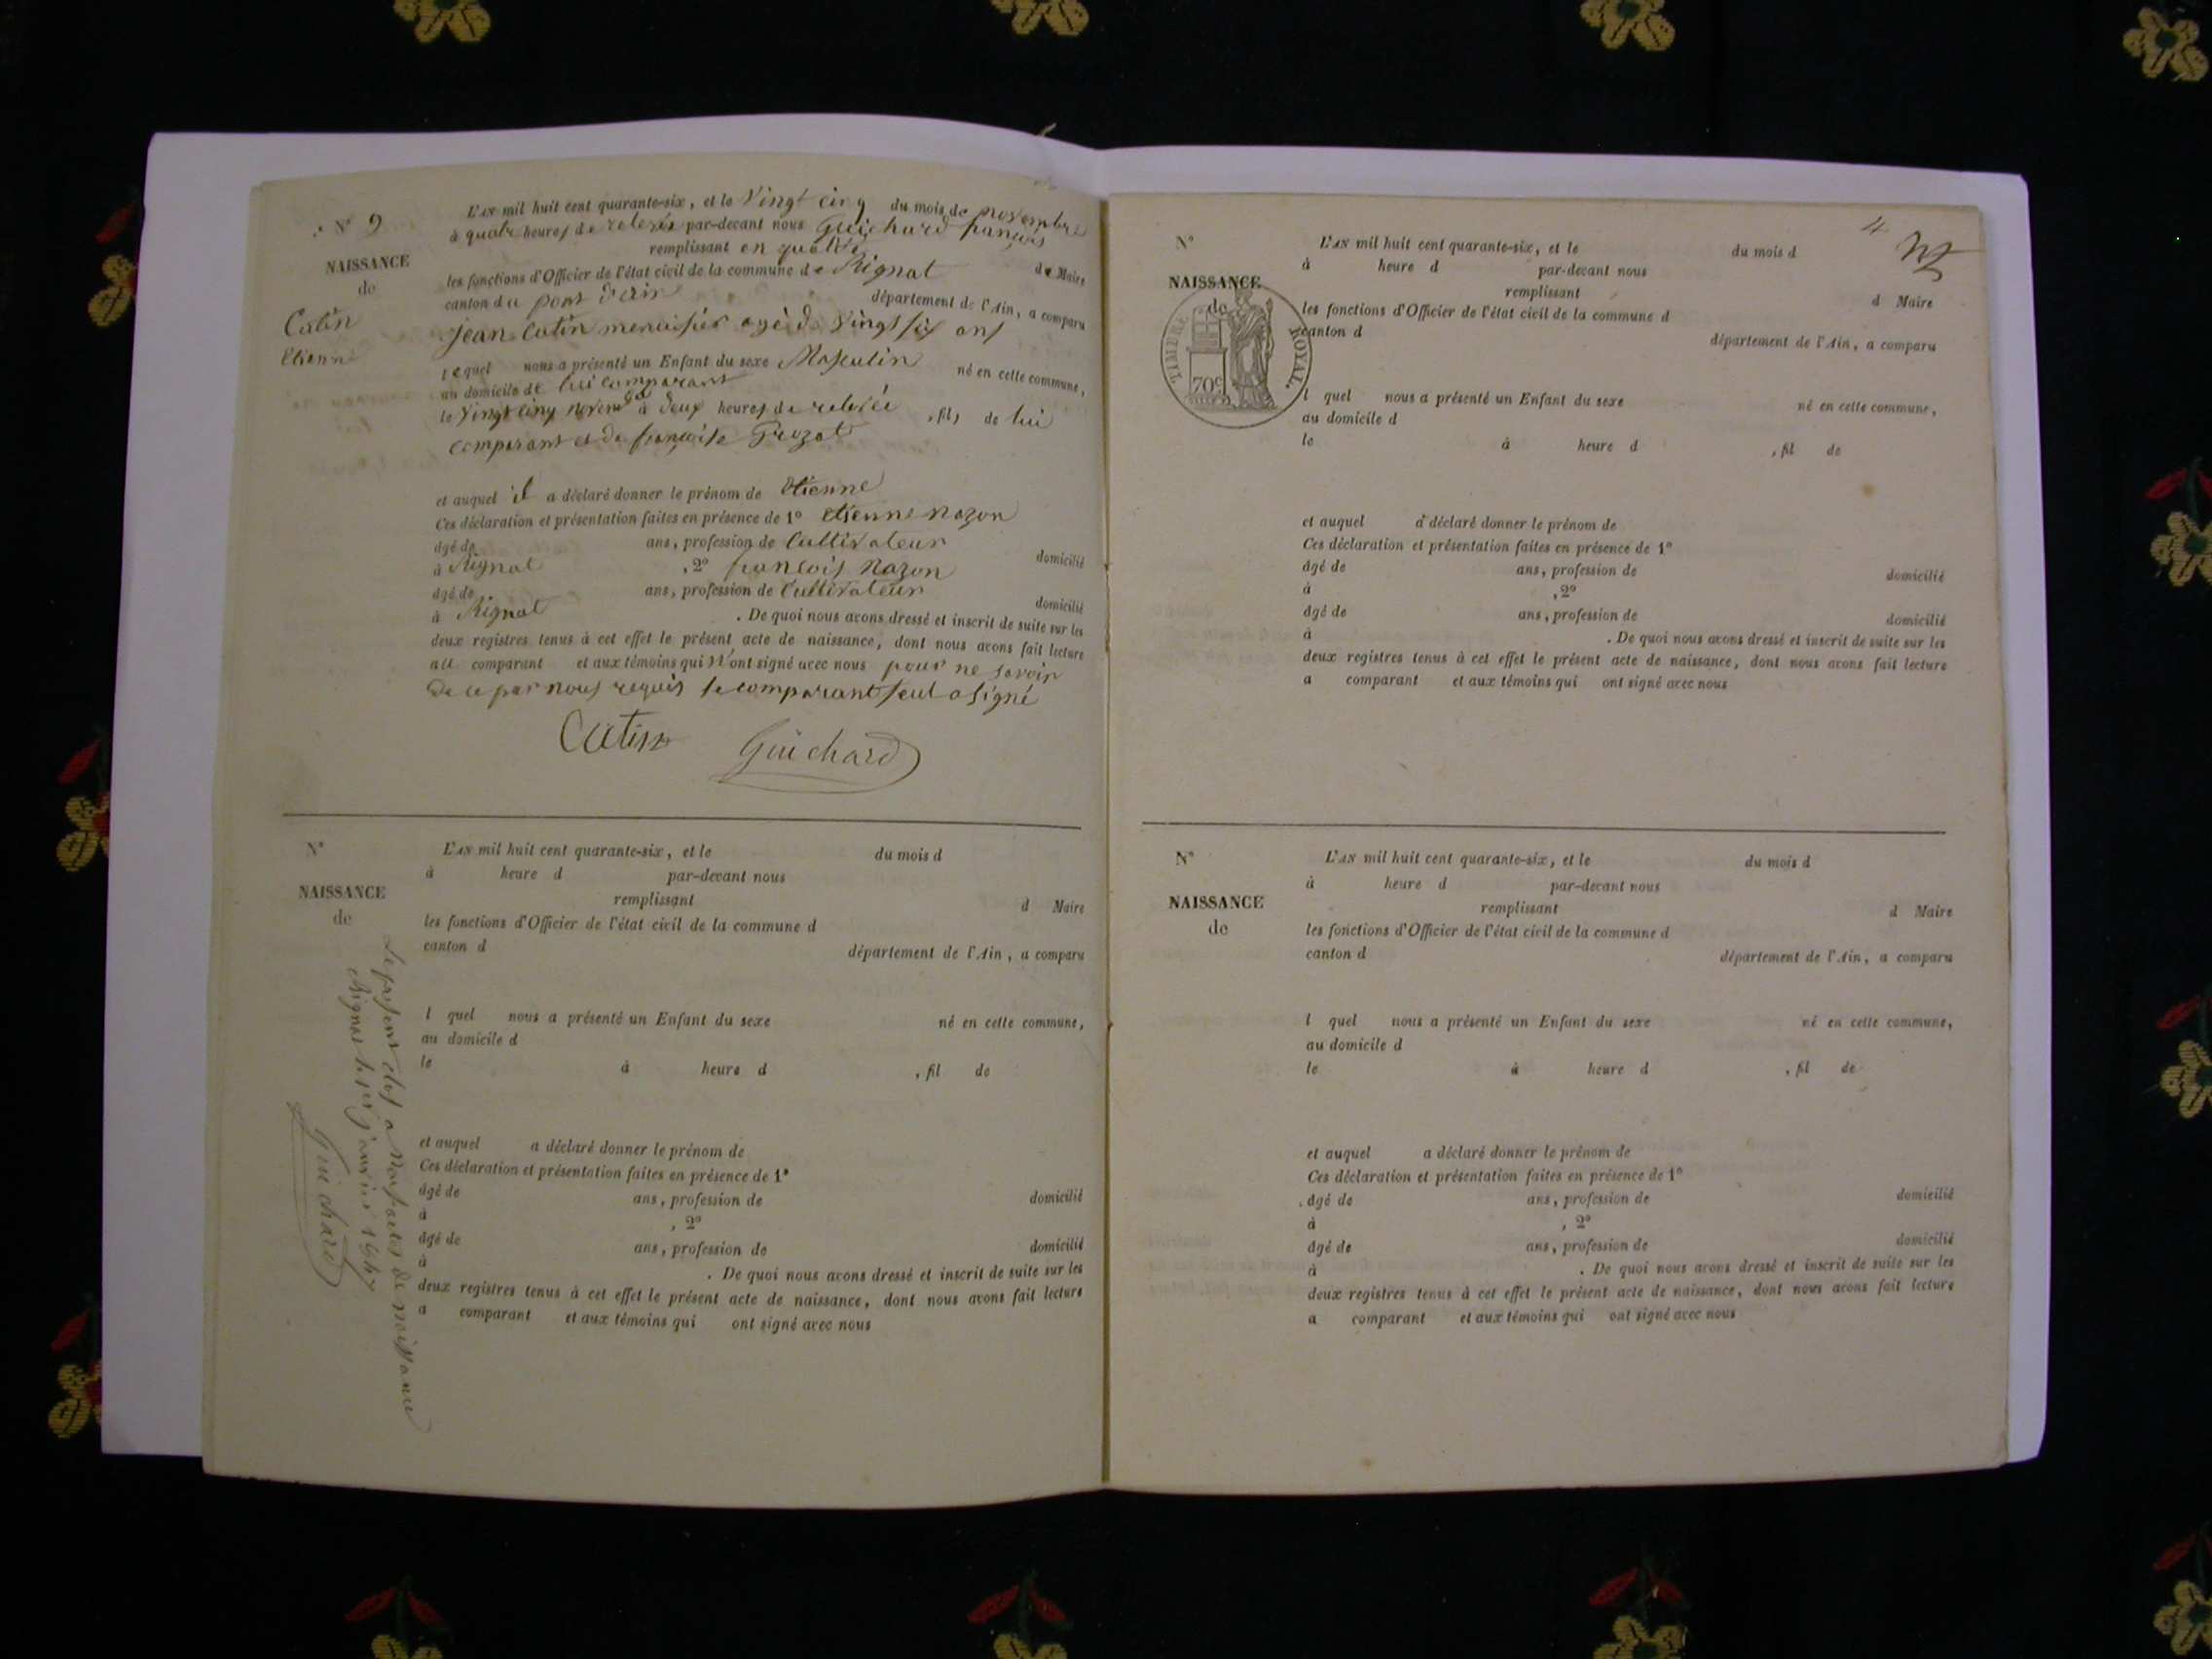 N° 9
NAISSANCE
de
Catin
Etienne
L'AN mil huit cent quarante-six, et le Vingt cinq du mois de novembre
à quatre heures de relevée par-devant nous Guichard françois
remplissant en qualité de Maire
les fonctions d'Officier de l'état civil de la commune de Rignat
canton du pont d'ain département de l'Ain, a comparu
Jean Catin menuisier agé de Vingt six ans
lequel nous a présenté un Enfant du sexe Masculin né en cette commune,
au domicile de lui comparant
le Vingt cinq novembre à deux heures de relevée , fils de lui
comparant et de françoise Prozat
et auquel il a déclaré donner le prénom de Etienne
Ces déclaration et présentation faites en présence de 1° etienne nazon
âgé de ans, profession de Cultivateur domicilié
à Rignat , 2° francois nazon
âgé de ans, profession de Cultivateur domicilié
à Rignat . De quoi nous avons dressé et inscrit de suite sur les
deux registres tenus à cet effet le présent acte de naissance, dont nous avons fait lecture
au comparant et aux témoins qui n'ont signé avec nous pour ne savoir
de ce par nous requis le comparant seul a signé
Catin Guichard
N°
NAISSANCE
de
L'AN mil huit cent quarante-six, et le du mois d
à heure d par-devant nous
remplissant d Maire
les fonctions d'Officier de l'état civil de la commune d
canton d département de l'Ain, a comparu
l quel nous a présenté un Enfant du sexe né en cette commune,
au domicile d
le à heure d , fil de
et auquel a déclaré donner le prénom de
Ces déclaration et présentation faites en présence de 1°
âgé de ans, profession de domicilié
à , 2°
âgé de ans, profession de domicilié
à . De quoi nous avons dressé et inscrit de suite sur les
deux registres tenus à cet effet le présent acte de naissance, dont nous avons fait lecture
a comparant et aux témoins qui ont signé avec nous
Le présent clos a neuf actes de naissance
Rignat le 1er janvier 1847
Guichard
4
N°
NAISSANCE
de
TIMBRE ROYAL.
70c
L'AN mil huit cent quarante-six, et le du mois d
à heure d par-devant nous
remplissant d Maire
les fonctions d'Officier de l'état civil de la commune d
canton d département de l'Ain, a comparu
l quel nous a présenté un Enfant du sexe né en cette commune,
au domicile d
le à heure d , fil de
et auquel a déclaré donner le prénom de
Ces déclaration et présentation faites en présence de 1°
âgé de ans, profession de domicilié
à , 2°
âgé de ans, profession de domicilié
à . De quoi nous avons dressé et inscrit de suite sur les
deux registres tenus à cet effet le présent acte de naissance, dont nous avons fait lecture
a comparant et aux témoins qui ont signé avec nous
N°
NAISSANCE
de
L'AN mil huit cent quarante-six, et le du mois d
à heure d par-devant nous
remplissant d Maire
les fonctions d'Officier de l'état civil de la commune d
canton d département de l'Ain, a comparu
l quel nous a présenté un Enfant du sexe né en cette commune,
au domicile d
le à heure d , fil de
et auquel a déclaré donner le prénom de
Ces déclaration et présentation faites en présence de 1°
âgé de ans, profession de domicilié
à , 2°
âgé de ans, profession de domicilié
à . De quoi nous avons dressé et inscrit de suite sur les
deux registres tenus à cet effet le présent acte de naissance, dont nous avons fait lecture
a comparant et aux témoins qui ont signé avec nous